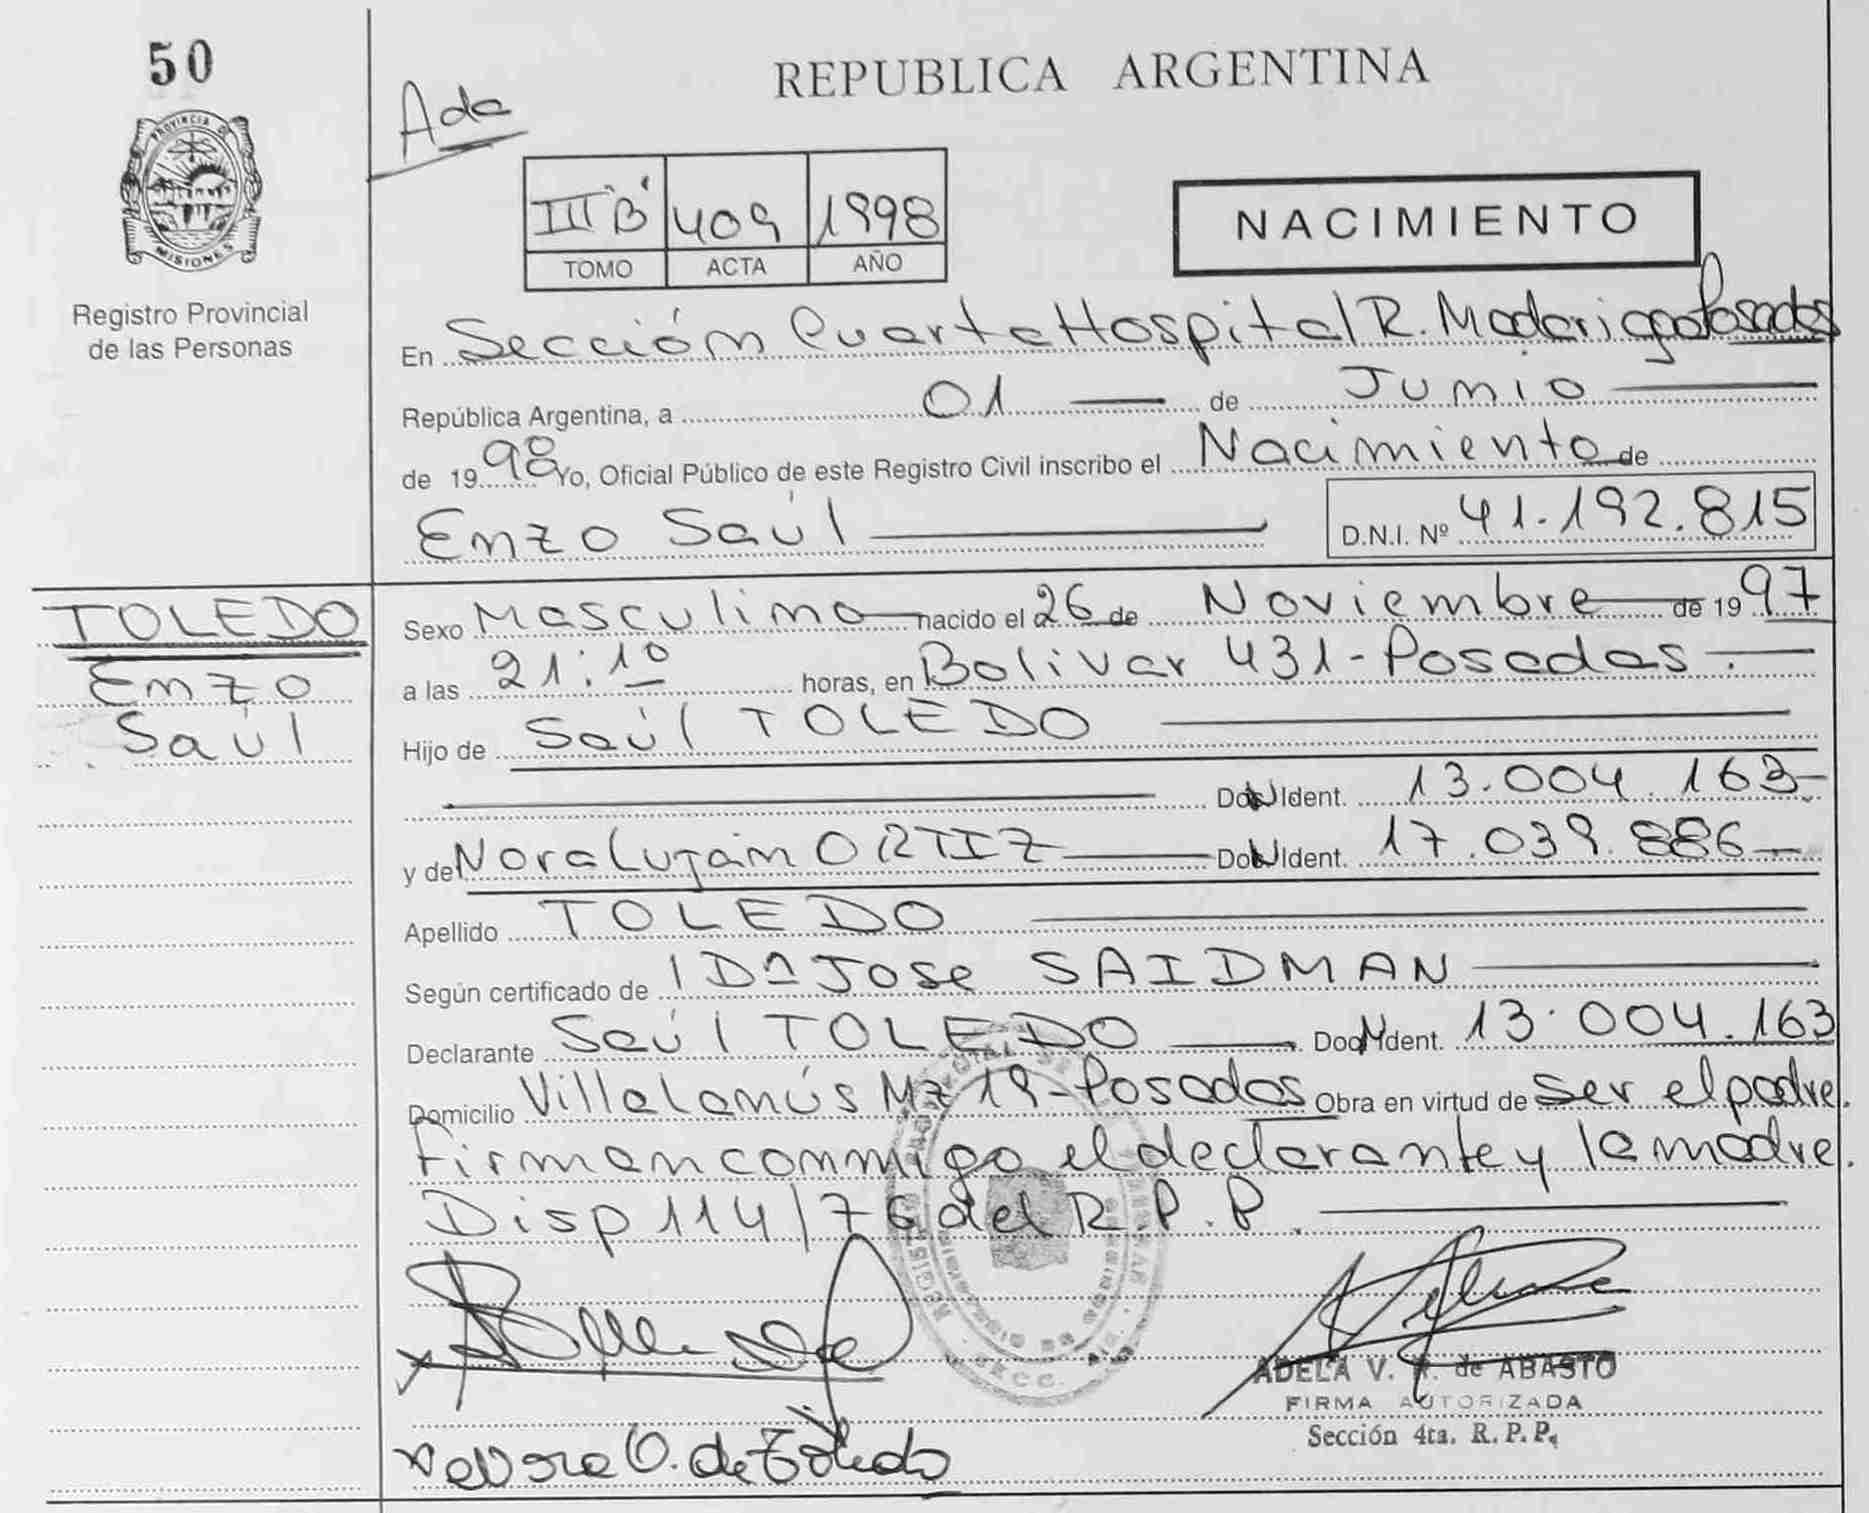 50
PROVINCIA DE
MISIONES
Registro Provincial
de las Personas
Ada
REPUBLICA ARGENTINA
III "B" 409 1998
TOMO ACTA AÑO
NACIMIENTO
En Sección Cuarta Hospital R. Madariaga Posadas
República Argentina, a 01 de Junio
de 1998 Yo, Oficial Público de este Registro Civil inscribo el Nacimiento de
Enzo Saúl
D.N.I. Nº 41.192.815
TOLEDO
Enzo
Saúl
Sexo Masculino nacido el 26 de Noviembre de 1997
a las 21:10 horas, en Bolivar 431-Posadas.
Hijo de Saúl TOLEDO
Doc. Ident. 13.004.163
y de Nora Luján ORTIZ Doc. Ident. 17.039.886
Apellido TOLEDO
Según certificado de Dr José SAIDMAN
Declarante Saúl TOLEDO Doc. Ident. 13.004.163
Domicilio Villa Lanús Mz 19-Posadas Obra en virtud de ser el padre.
Firman conmigo el declarante y la madre.
Disp 114/76 del R.P.P.
ADELA V. de ABASTO
FIRMA AUTORIZADA
Sección 4ta. R.P.P.
Nora O. de Toledo